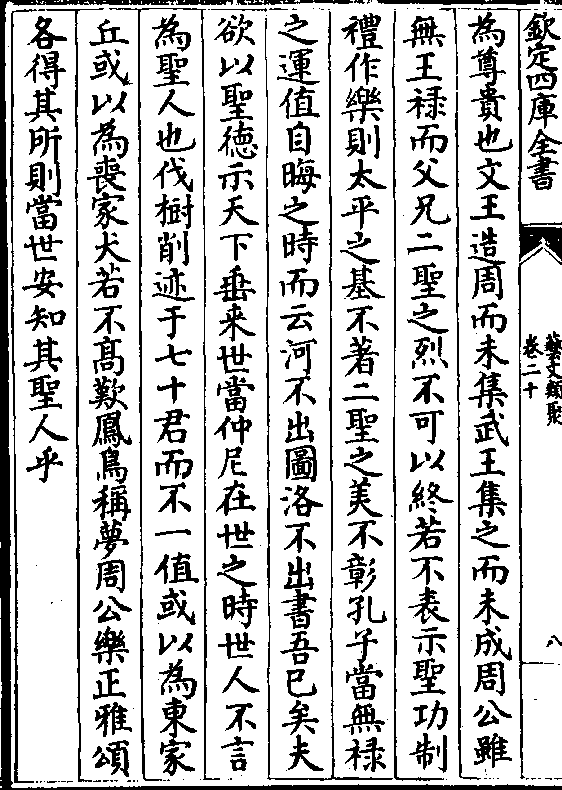 欽定四庫全書
藝文類聚
卷二十
八
為尊貴也文王造周而未集武王集之而未成周公雖
無王祿而父兄二聖之烈不可以終若不表示聖功制
禮作樂則太平之基不著二聖之美不彰孔子當無祿
之運值自晦之時而云河不出圖洛不出書吾已矣夫
欲以聖德示天下垂来世當仲尼在世之時世人不言
為聖人也伐樹削迹于七十君而不一值或以為東家
丘或以為喪家犬若不高歎鳳鳥稱夢周公樂正雅頌
各得其所則當世安知其聖人乎